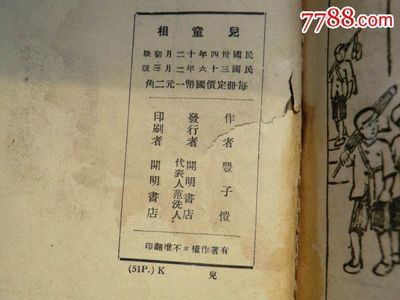 7788.com
兒童相
民國卅四年十二月初版
民國三十六年二月三版
每冊定價國幣一元二角
作者 豐子愷
發行者 開明書店
代表人范洗人
印刷者 開明書店
有著作權*不准翻印
(51P.) K 兒